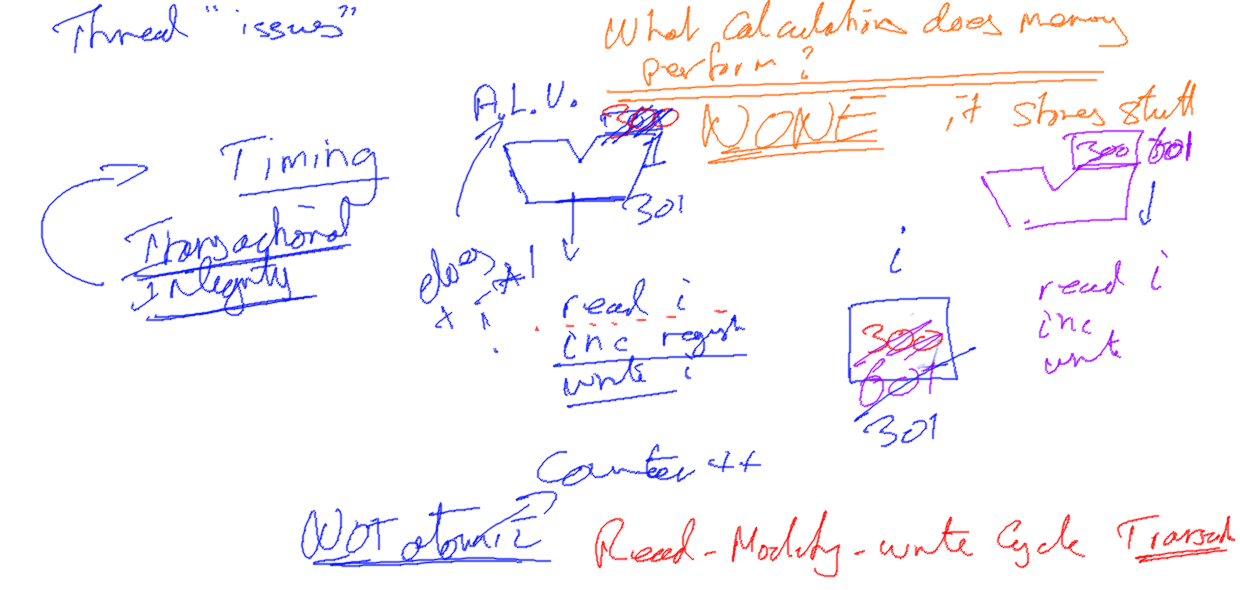 Thread "issues"
What Calculation does memory
perform?
NONE it stores stuff
A.L.U.
300
1
301
Timing
Transactional
Integrity
does
+1
read i
inc regist
write i
i
300
601
301
300 601
read i
inc
write
Counter ++
NOT atomic
Read-Modify-write Cycle Transact